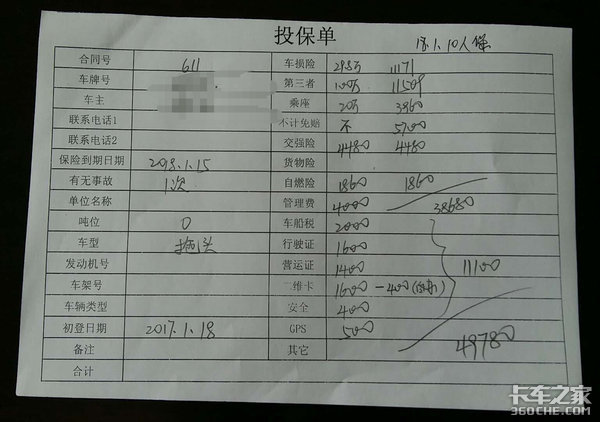 投保单
18.1.10人保
合同号 611 车损险 29.8万 11171
车牌号 第三者 100万 11509
车主 乘座 20万 3960
联系电话1 不计免赔 不 5700
联系电话2 交强险 4480 4480
保险到期日期 2018.1.15 货物险
有无事故 1次 自燃险 1860 1860
单位名称 管理费 4000 38680
吨位 0 车船税 2000
车型 拖头 行驶证 1600
发动机号 营运证 1400 11100
车架号 二维卡 1600 -400
车辆类型 安全 400
初登日期 2017.1.18 GPS 500
备注 其它 49780
合计
卡车之家
360CHE.COM